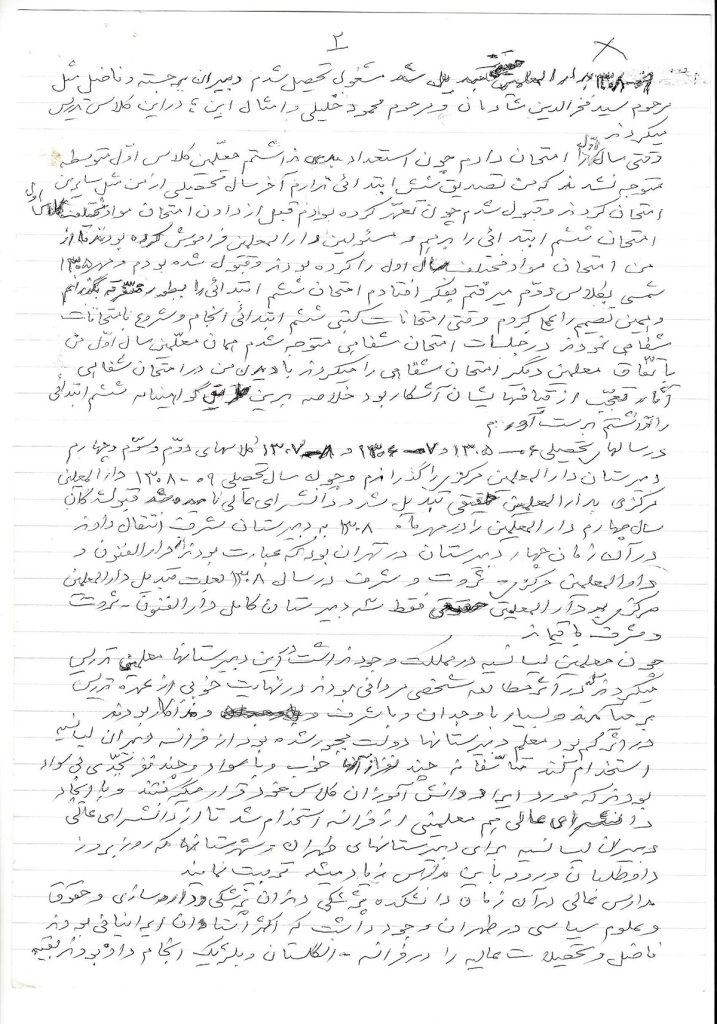 ۲
۱۳۰۸ بدارالمعلمین مشغول تحصیل شدم دبیران برجسته و فاضل مثل
مرحوم سید فخرالدین شادمان و مرحوم محمود خلیلی و امثال این ها در این کلاس تدریس
میکردند
وقتی سال اول را امتحان دادم چون استعداد نداشتم معلمین کلاس اول متوسطه
متوجه نشدند که من تصدیق شش ابتدائی ندارم آخر سال تحصیلی از من مثل سایرین
امتحان کردند و قبول شدم چون تعهد کرده بودم قبل از دادن امتحان مواد مختلف کلاس اول
امتحان ششم ابتدائی را بدهم و مسئولین دارالمعلمین فراموش کرده بودند و از
من امتحان مواد مختلف سال اول را کرده بودند و قبول شده بودم و مهر ۱۳۰۵
شمسی بکلاس دوم میرفتم بفکر افتادم امتحان ششم ابتدائی را بطور متفرقه بگذرانم
و همین تصمیم را عملی کردم وقتی امتحانات کتبی ششم ابتدائی انجام و شروع بامتحانات
شفاهی نمودند در جلسات امتحان شفاهی متوجه شدم همان معلمین سال اول من
باتفاق معلمین دیگر امتحان شفاهی را میکردند با دیدن من در امتحان شفاهی
آثار تعجب از قیافه‌ایشان آشکار بود خلاصه بدین طریق گواهینامه ششم ابتدائی
را توانستم بدست آورم
در سالهای تحصیلی ۰۶-۱۳۰۵ و ۰۷-۱۳۰۶ و ۰۸-۱۳۰۷ کلاسهای دوم و سوم و چهارم
دبیرستان دارالمعلمین مرکزی را گذراندم و چون سال تحصیلی ۰۹-۱۳۰۸ دارالمعلمین
مرکزی بدارالمعلمین تبدیل شد و دانشسرای عالی نامیده شد قبولشدگان
سال چهارم دارالمعلمین را در مهرماه ۱۳۰۸ به دبیرستان شرفت انتقال دادند
در آن زمان چهار دبیرستان در تهران بود که عبارت بودند از دارالفنون و
دارالمعلمین مرکزی - ثروت و شرفت در سال ۱۳۰۸ بعلت تبدیل دارالمعلمین
مرکزی بدارالمعلمین فقط سه دبیرستان کامل دارالفنون - ثروت
و شرفت باقیماند
چون معلمین لیسانسیه در مملکت وجود نداشت در این دبیرستانها معلمین تدریس
میکردند که در اثر مطالعه شخصی مردانی بودند در نهایت خوبی از عهده تدریس
بر میآمدند و بسیار با وجدان و با شرفت و فداکار بودند
در اثر کمبود معلم دبیرستانها دولت مجبور شده بود از فرانسه دبیران لیسانسیه
استخدام کند متأسفانه چند نفر از آنها خوب و با سواد و چند نفر بی سواد
بودند که مورد ایراد دانش آموزان کلاس خود قرار میگرفتند و با ایجاد
دانشسرای عالی هم معلمینی از فرانسه استخدام شد تا از دانشسرای عالی
دبیران لیسانسیه برای دبیرستانهای طهران و شهرستانها که روز بروز
داوطلبان ورود باین مدارس زیاد میشد تربیت نمایند
مدارس عالی در آن زمان دانشکده پزشکی دندان پزشکی و داروسازی و حقوق
و علوم سیاسی در طهران وجود داشت که اکثر استادان ایرانیانی بودند
فاضل و تحصیلات عالیه را در فرانسه - انگلستان و بلژیک انجام داده بودند بقیه